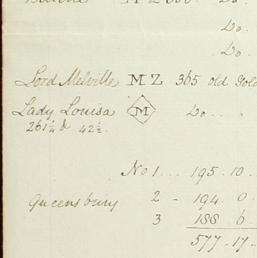 Do.
Do.
Lord Melville MZ 365 old Gold
Lady Louisa M Do. "
261¼ & 42½
No 1 ... 195.10.
Queensbury 2 - 194.0
3 188 6
577-17-